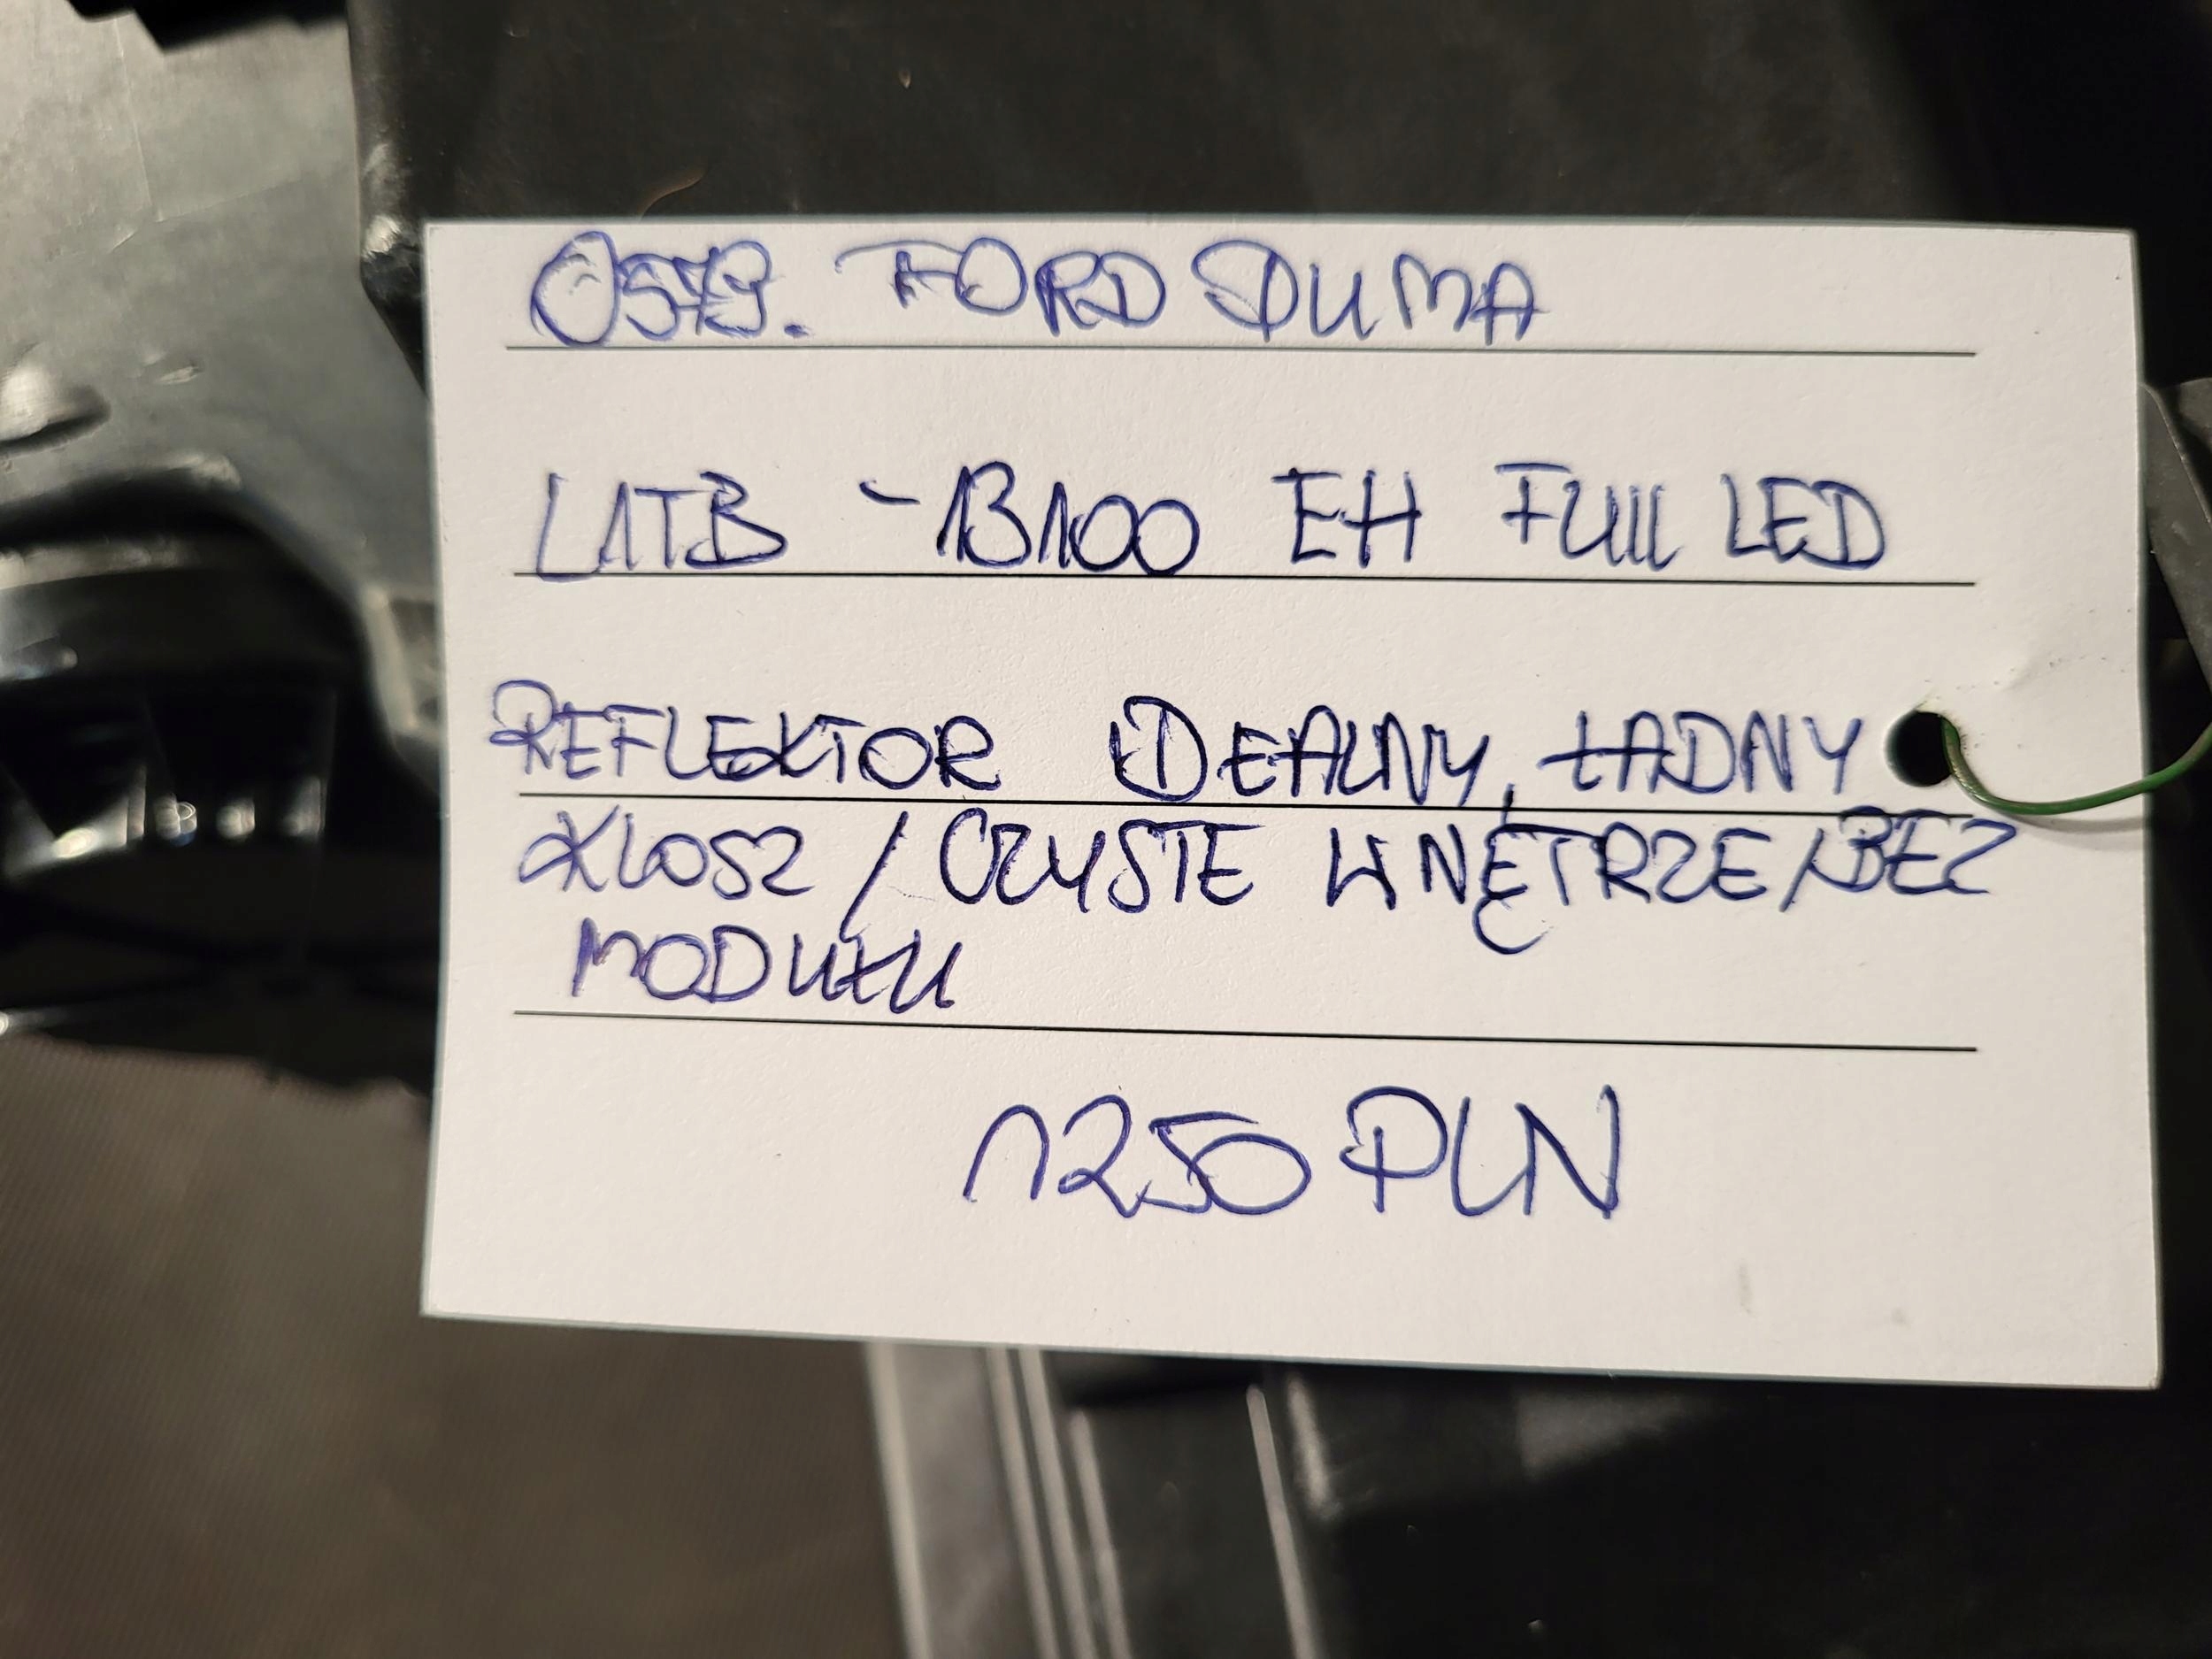 0579. FORD PUMA
L1TB - 13100 EH FUll LED
REFLEKTOR IDEALNY, ŁADNY
KLOSZ / CZYSTE WNĘTRZE / BEZ
MODUŁU
1250 PLN